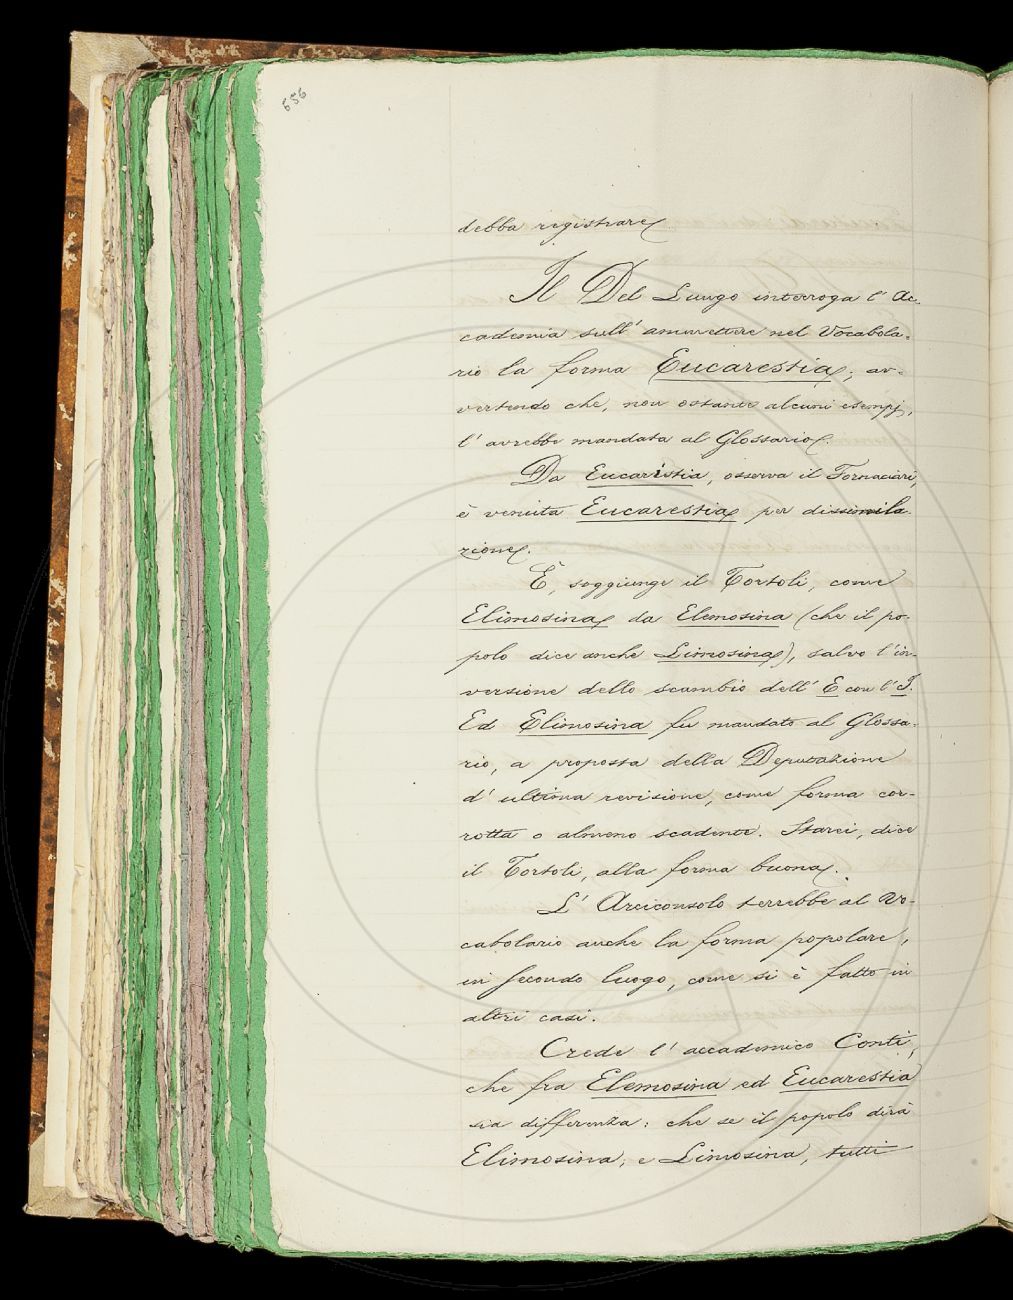 656
debba registrare.
Il Del Lungo interroga l' Ac-
cademia sull' ammettere nel Vocabola-
rio la forma Eucarestia; av-
vertendo che, non ostante alcuni esempj,
l' avrebbe mandata al Glossario.
Da Eucaristia, osserva il Fornaciari,
è venuta Eucarestia per dissimila-
zione.
È, soggiunge il Tortoli, come
Elimosina da Elemosina (che il po-
polo dice anche Limosina), salvo l' in-
versione dello scambio dell' E con l' I.
Ed Elimosina fu mandato al Glossa-
rio, a proposta della Deputazione
d' ultima revisione, come forma cor-
rotta o almeno scadente. Starei, dice
il Tortoli, alla forma buona.
L' Arciconsolo terrebbe al Vo-
cabolario anche la forma popolare,
in secondo luogo, come si è fatto in
altri casi.
Crede l' accademico Conti,
che fra Elemosina ed Eucarestia
sia differenza: che se il popolo dirà
Elimosina, e Limosina, tutti